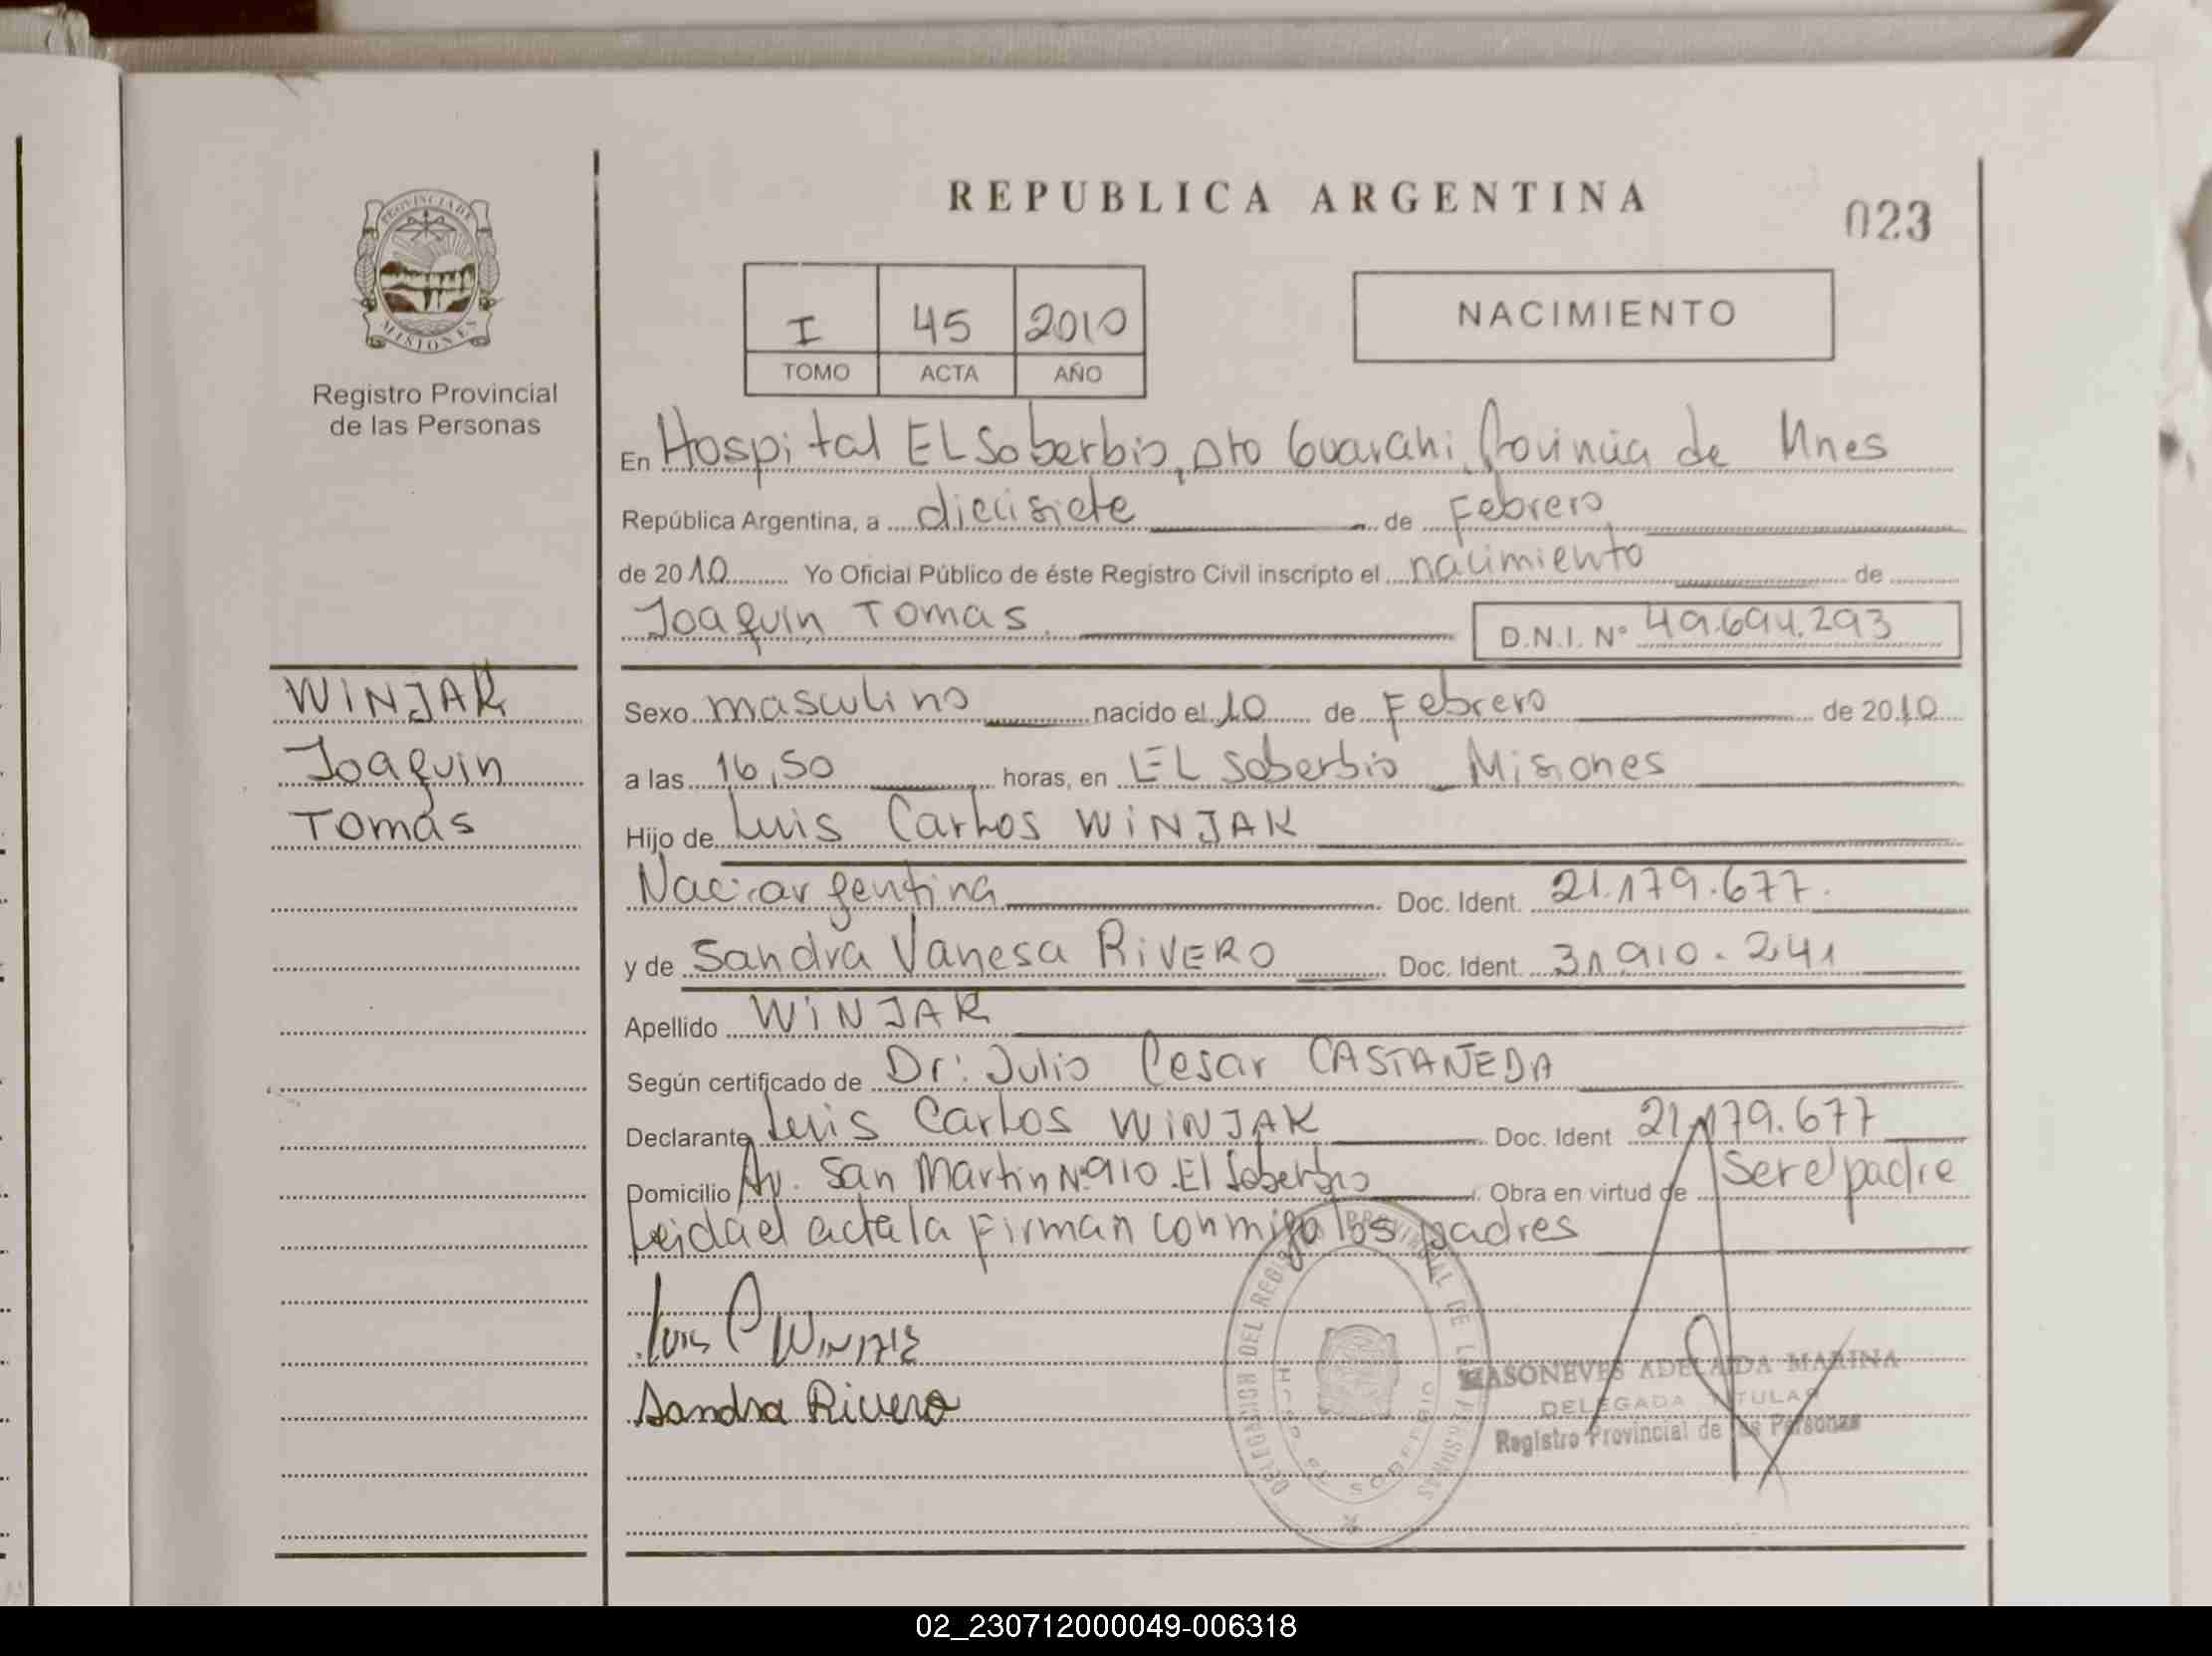 PROVINCIA DE
MISIONES
Registro Provincial
de las Personas
WINJAK
Joaquin
Tomás
REPUBLICA ARGENTINA
023
I 45 2010
TOMO ACTA AÑO
NACIMIENTO
En Hospital EL Soberbio, Dto Guarani, Provincia de Mnes
República Argentina, a diecisiete de Febrero
de 2010 Yo Oficial Público de éste Registro Civil inscripto el nacimiento de
Joaquin Tomas. D.N.I. Nº 49.694.293
Sexo masculino nacido el 10 de Febrero de 2010
a las 16,50 horas, en EL Soberbio - Misiones
Hijo de Luis Carlos WINJAK
Nac: argentina Doc. Ident. 21.179.677.
y de Sandra Vanesa RIVERO Doc. Ident. 31.910.241
Apellido WINJAK
Según certificado de Dr: Julio Cesar CASTAÑEDA
Declarante Luis Carlos WINJAK Doc. Ident 21.179.677
Domicilio Av. San Martin Nº 910. El Soberbio. Obra en virtud de Ser el padre
Leida el acta la Firman conmigo los padres
Luis C WINJAK
Sandra Rivero
DELEGACION DEL REGISTRO PROVINCIAL DE LAS PERSONAS
EL SOBERBIO
MASONEVES ADELAIDA MARINA
DELEGADA TITULAR
Registro Provincial de las Personas
02_230712000049-006318